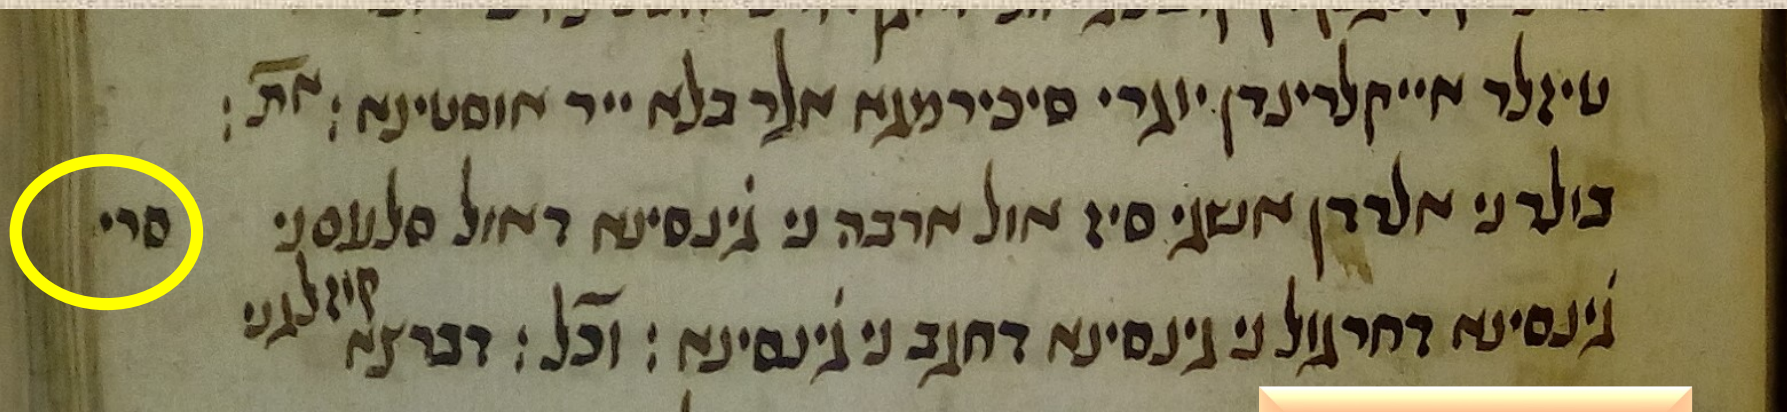 טיזלר אייקלרינדן יוגרי סיכירמגא אלר בלא ייר אוסטינא ; את ;
בולרני אלרדן אשגי סיז אול ארבה ני גינסינא דאול סלעםני סרי
גינסינא דחרגול ני גינסינא דחגב ני גינסינא ; וכל ; דברצא קיזלגני